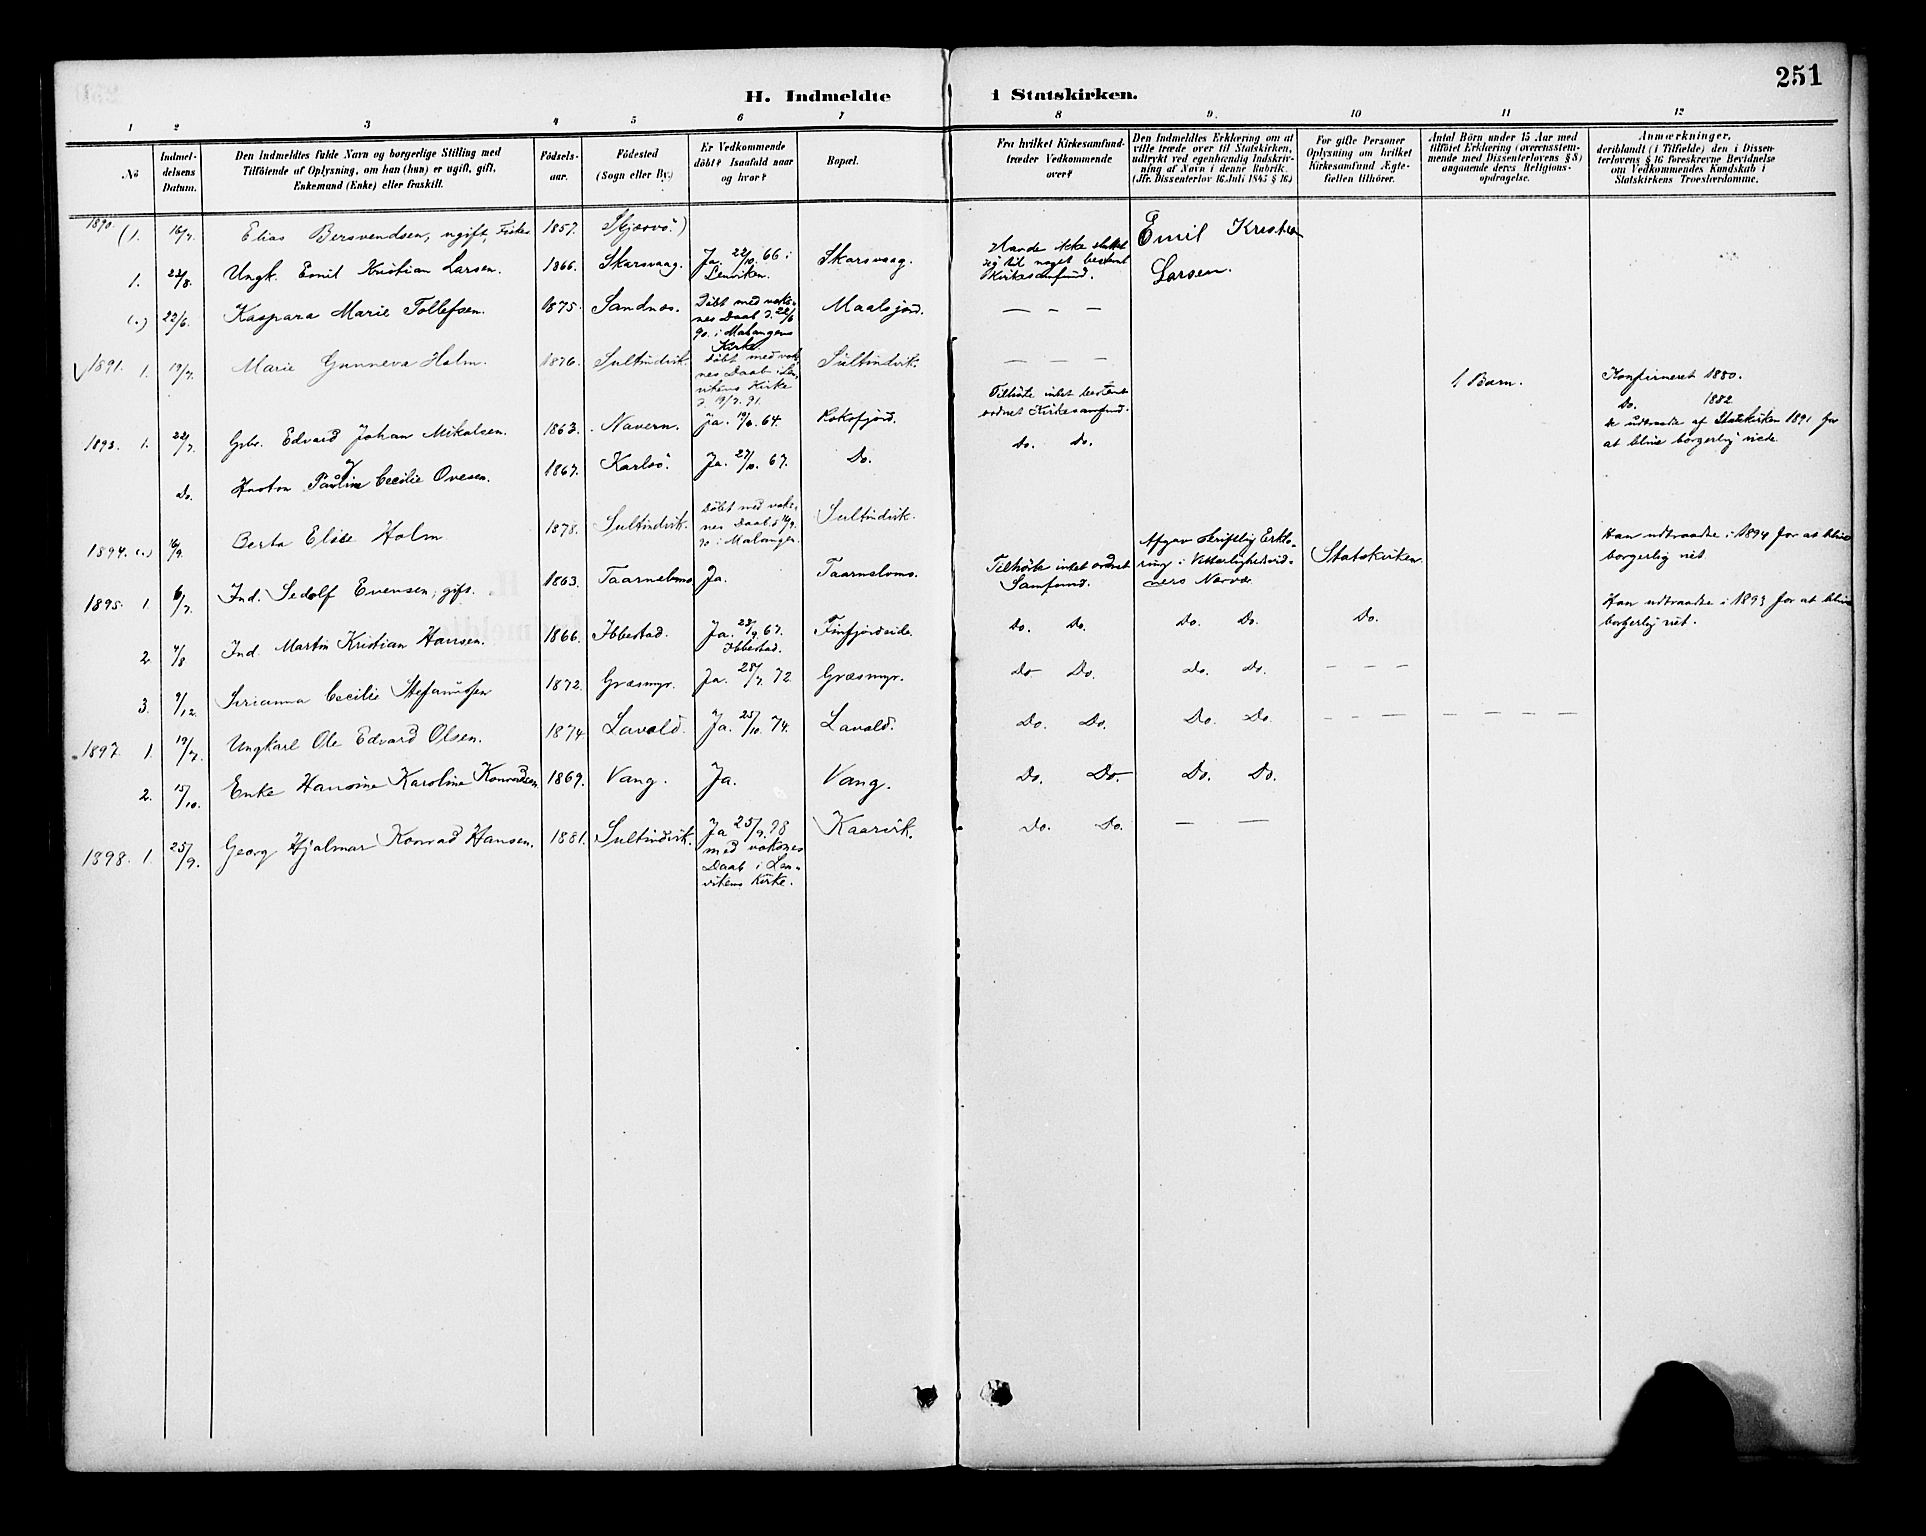 251
H. Indmeldte i Statskirken.
1 2 3 4 5 6 7 8 9. 10 11 12
No
Indmel-
delsens
Datum.
Den Indmeldtes fulde Navn og borgerlige Stilling med
Tilföiende af Oplysning, om han (hun) er ugift, gift,
Enkemand (Enke) eller fraskilt.
Födsels-
aar.
Födested
(Sogn eller By.)
Er Vedkommende
döbt? Isaafald naar
og hvor?
Bopæl.
Fra hvilket Kirkesamfund
træder Vedkommende
over?
Den Indmeldtes Erklæring om at
ville træde over til Statskirken,
udtrykt ved egenhændig Indskriv-
ning af Navn i denne Rubrik.
(Jfr. Dissenterlov 16. Juli 1845 § 16.)
For gifte Personer
Oplysning om hvilket
Kirkesamfund Ægte-
fællen tilhörer.
Antal Börn under 15 Aar med
tilföiet Erklæring (overensstem-
mende med Dissenterlovens § 8)
angaaende deres Religions-
opdragelse.
Anmærkninger,
deriblandt (i Tilfælde) den i Dissen-
terlovens § 16 foreskrevne Bevidnelse
om Vedkommendes Kundskab i
Statskirkens Troeslærdomme.
1890. (1. 16/7. Elias Bersvendsen, ugift, Fisker 1857. Skjærvö.)
1. 22/8. Ungk. Emil Kristian Larsen. 1866. Skarsvaag. Ja. 22/10. 66 i
Lenviken. Skarsvaag.
Havde ikke sluttet
sig til noget bestemt
Kirkesamfund.
Emil Kristian
Larsen.
(.) 22/6. Kaspara Marie Tollefsen. 1875. Sandnes. Döbt med voks-
nes Daab d. 22/6
90. i Malangens
Kirke. Maalsjord. — — —
1891. 1. 19/7. Marie Gunneva Holm. 1876. Sultindvik. Döbt med voks
nes Daab i Len-
vikens Kirke
d. 19/7. 91. Sultindvik. — — —
1893. 1. 22/7. Gbr. Edvard Johan Mikalsen. 1863. Navern. Ja. 19/6. 64. Roksfjord.
Tilhörte intet bestemt
ordnet Kirkesamfund.
1 Barn.
Konfirmeret 1880.
Do. 1882.
de udtraadte af Statskirken 1891 for
at blive borgerlig viede.
Do. Hustru Pauline Cecilie Ovesen. 1867. Karlsö. Ja. 27/10. 67. Do. Do. Do.
1894. (.) 16/9. Berta Elise Holm 1878. Sultindvik. Döbt med voks-
nes Daab d 16/9.
90 i Malangen. Sultindvik.
1895. 1. 6/7. Ind. Sedolf Evensen, gift. 1863. Taarnelvmo Ja. Taarnelvmo.
Tilhörte intet ordnet
Samfund.
Afgav skriftlig Erklæ-
ring i Vitterlighedsvid-
ners Nærvær
Statskirken
Han udtraadte i 1894 for at blive
borgerlig viet.
2 4/8 Ind. Martin Kristian Hansen. 1866. Ibbestad. Ja. 22/9. 67.
Ibbestad. Finfjordeide. Do. Do. Do. Do. Do.
Han udtraadte i 1893 for at blive
borgerlig viet.
3. 9/12. Sirianna Cecilie Stefanussen 1872. Græsmyr. Ja. 28/7. 72. Græsmyr. Do Do. Do. Do. — — —
1897. 1 19/7. Ungkarl Ole Edvard Olsen. 1874 Lavold. Ja. 25/10. 74. Lavold. Do. Do. Do. Do. — — — — — — —
2. 15/10. Enke Hansine Karoline Konradsen 1869. Vang. Ja. Vang. Do. Do. Do. Do.
1898. 1. 25/9. Georg Hjalmar Konrad Hansen. 1881. Sultindvik. Ja 25/9. 98
med voksnes
Daab i Len-
vikens Kirke. Kaarvik. Do. Do. — —